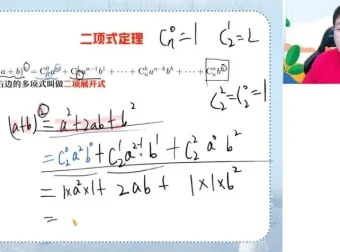 二项式定理 C_n^0=1 C_2^1=2
(a+b)^n=C_n^0a^n+C_n^1a^{n-1}b^1+⋯+C_n^ka^{n-k}b^k+⋯+C_n^nb^n
右边的多项式叫做二项展开式 C_2^2=C_2^0=1
(a+b)^2=a^2+2ab+b^2
=C_2^0a^2b^0+C_2^1a^{2-1}·b^1+C_2^2a^0b^2
=1×a^2×1+2ab+1×1×b^2
=